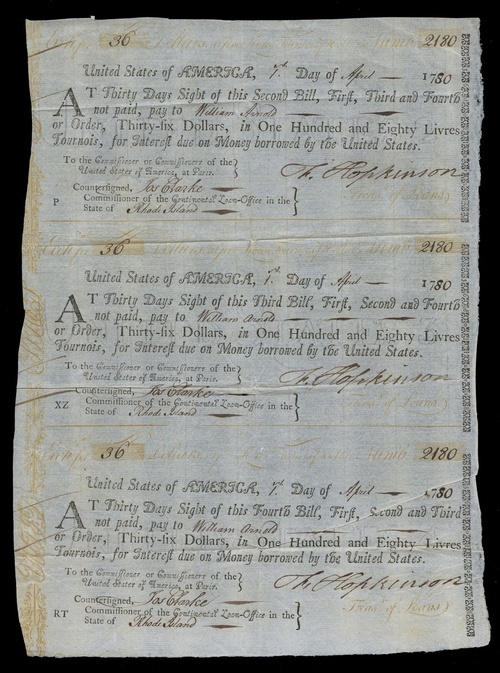 36 2180
United States of AMERICA, 7th Day of April 1780
AT Thirty Days Sight of this Second Bill, First, Third and Fourth
not paid, pay to William Arnold
or Order, Thirty-six Dollars, in One Hundred and Eighty Livres
Tournois, for Interest due on Money borrowed by the United States.
To the Commissioner or Commissioners of the
United States of America, at Paris.
Fs. Hopkinson
Countersigned, Jos Clarke
P Commissioner of the Continental Loan-Office in the
State of Rhode Island
36 2180
United States of AMERICA, 7th Day of April 1780
AT Thirty Days Sight of this Third Bill, First, Second and Fourth
not paid, pay to William Arnold
or Order, Thirty-six Dollars, in One Hundred and Eighty Livres
Tournois, for Interest due on Money borrowed by the United States.
To the Commissioner or Commissioners of the
United States of America, at Paris.
Fs. Hopkinson
Countersigned, Jos Clarke
XZ Commissioner of the Continental Loan-Office in the
State of Rhode Island
36 2180
United States of AMERICA, 7th Day of April 1780
AT Thirty Days Sight of this Fourth Bill, First, Second and Third
not paid, pay to William Arnold
or Order, Thirty-six Dollars, in One Hundred and Eighty Livres
Tournois, for Interest due on Money borrowed by the United States.
To the Commissioner or Commissioners of the
United States of America, at Paris.
Fs. Hopkinson
Countersigned, Jos Clarke
RT Commissioner of the Continental Loan-Office in the
State of Rhode Island